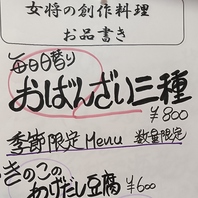 女将の創作料理
お品書き
毎日日替り
おばんざい三種
¥800
季節限定Menu 数量限定
きのこの
あげだし豆腐 ¥600